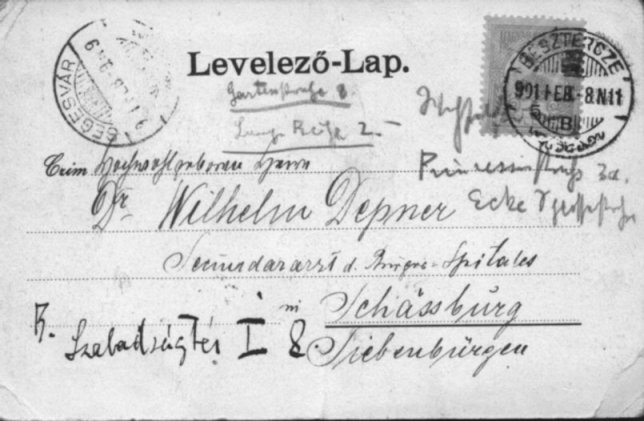 Levelező-Lap.
SEGESVÁR
BESZTERCZE
911 FEB. -8.N11
B
Gartenstraße 8
Lange Reihe 2.-
Hochwohlgeboren Herrn
Dr Wilhelm Depner
Prinzessinstraße 3a.
Ecke
Secundararzt d. Bürger-Spitales
in Schässburg
Siebenbürgen
Szabadságtér I 8